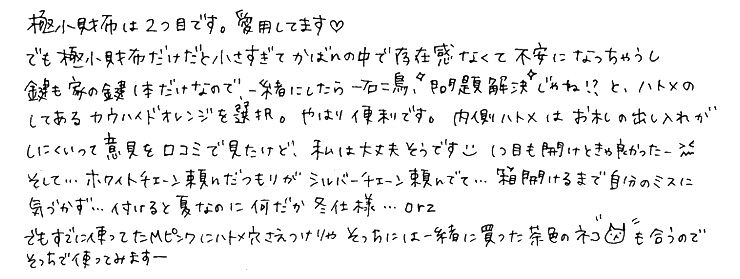 極小財布は2つ目です。愛用してます♡
でも極小財布だけだと小さすぎてかばんの中で存在感なくて不安になっちゃうし
鍵も家の鍵1本だけなので、一緒にしたら一石二鳥、問題解決じゃね!?と、ハトメの
してあるカウハイドオレンジを選択。やはり便利です。内側ハトメはお札の出し入れが
しにくいって意見を口コミで見たけど、私は大丈夫そうです 1つ目も開けときゃ良かったー
そして…ホワイトチェーン頼んだつもりがシルバーチェーン頼んでて…箱開けるまで自分のミスに
気づかず…付けると夏なのに何だか冬仕様…orz
でもすでに使ってたMピンクにハトメ穴さえつけりゃそっちには一緒に買った茶色のネコも合うので
そっちで使ってみますー